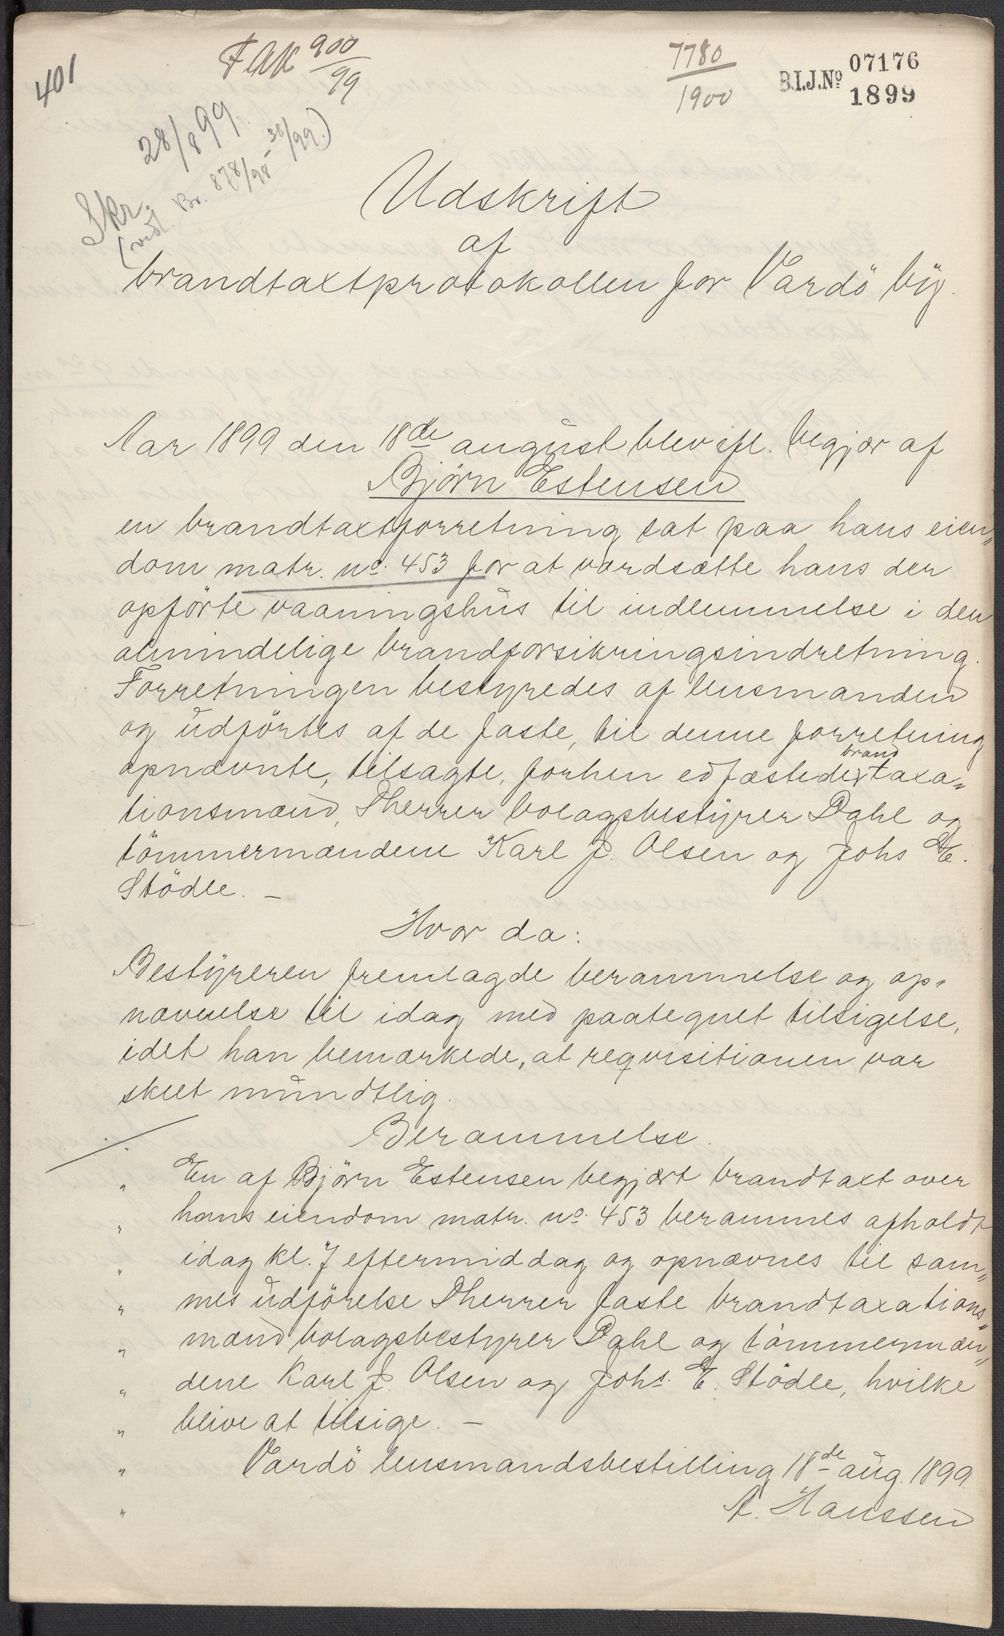 401
FAK 900/99
7780/1900
B.I.J.Nº 07176 1899
Skr. 28/8 99.
(vid. Br. 878/98 - 30/99.)
Udskrift
af
brandtaxtprotokollen for Vardö by.
Aar 1899 den 18de august blev ifl. begjær af
Björn Estensen
en brandtaxtforretning sat paa hans eien„
dom matr. no. 453 for at værdsætte hans der
opförte vaaningshus til indlemmelse i den
almindelige brandforsikringsindretning.
Forretningen bestyredes af lensmanden
og udförtes af de faste, til denne forretning
opnævnte, tilsagte, forhen edfæstede brandtaxa„
tionsmænd, Dherrer bolagsbestyrer Dahl og
tömmermændene Karl J. Olsen og Johs E.
Stödle. —
Hvor da:
Bestyreren fremlagde berammelse og op„
nævnelse til idag med paategnet tilsigelse,
idet han bemærkede, at reqvisitionen var
skeet mundtlig.
./. Berammelse.
„ En af Björn Estensen begjært brandtaxt over
„ hans eiendom matr. no. 453 berammes afholdt
„ idag kl. 7 eftermiddag og opnævnes til sam„
„ mes udförelse Dherrer faste brandtaxations„
„ mænd bolagsbestyrer Dahl og tömmermæn„
„ dene Karl J. Olsen og Johs. E. Stödle, hvilke
„ blive at tilsige. —
„ Vardö lensmandsbestilling 18de aug. 1899.
„ A. Hanssen